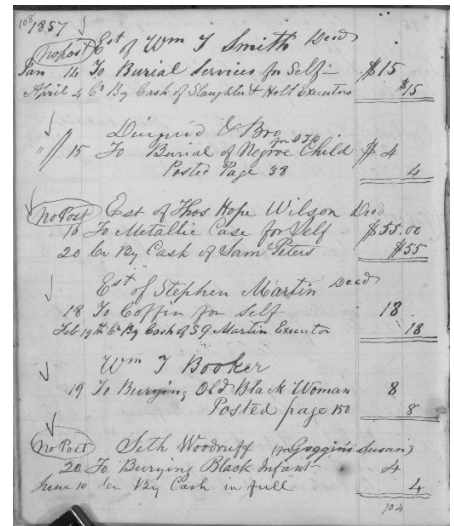 108 1857
No post Est of Wm T Smith Decd
Jan 14 To Burial Services for Self $15
April 4 Cr By Cash of Slaughter & Holt Executors $15
Diuguid & Bro
" 15 To Burial of Negroe Child $4
Posted Page 38 4
No Post Est of Thos Hope Wilson Decd
16 To Metallic Case for Self $55.00
20 Cr By Cash of Sam Peters $55
Est of Stephen Martin Decd
18 To Coffin for Self 18
Feb 19th Cr By Cash of S G Martin Executor 18
Wm T Booker
19 To Burying Old Black Woman 8
Posted page 150 8
No Post Seth Woodruff (for Goggins Susan)
20 To Burying Black Infant 4
June 10 Cr By Cash in full 4
104